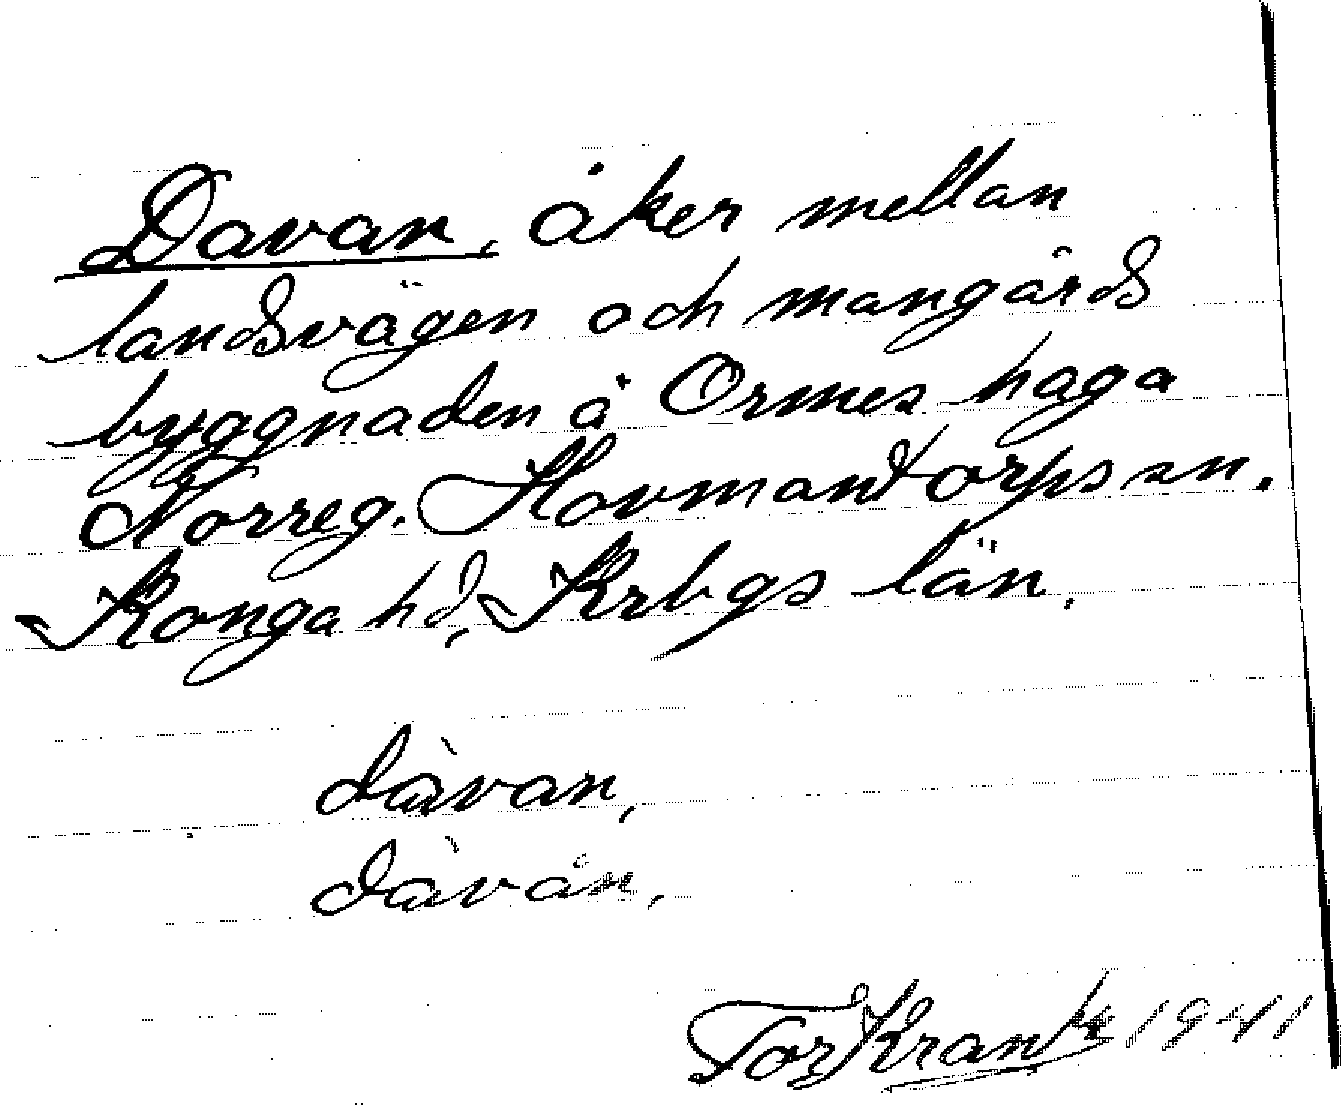 Davan, åker mellan
landsvägen och mangårds
byggnaden å Ormeshaga
Norreg. Hovmantorps sn.
Konga hd, Krbgs län.
dàvan,
dàvån,
Tor Krantz 1941